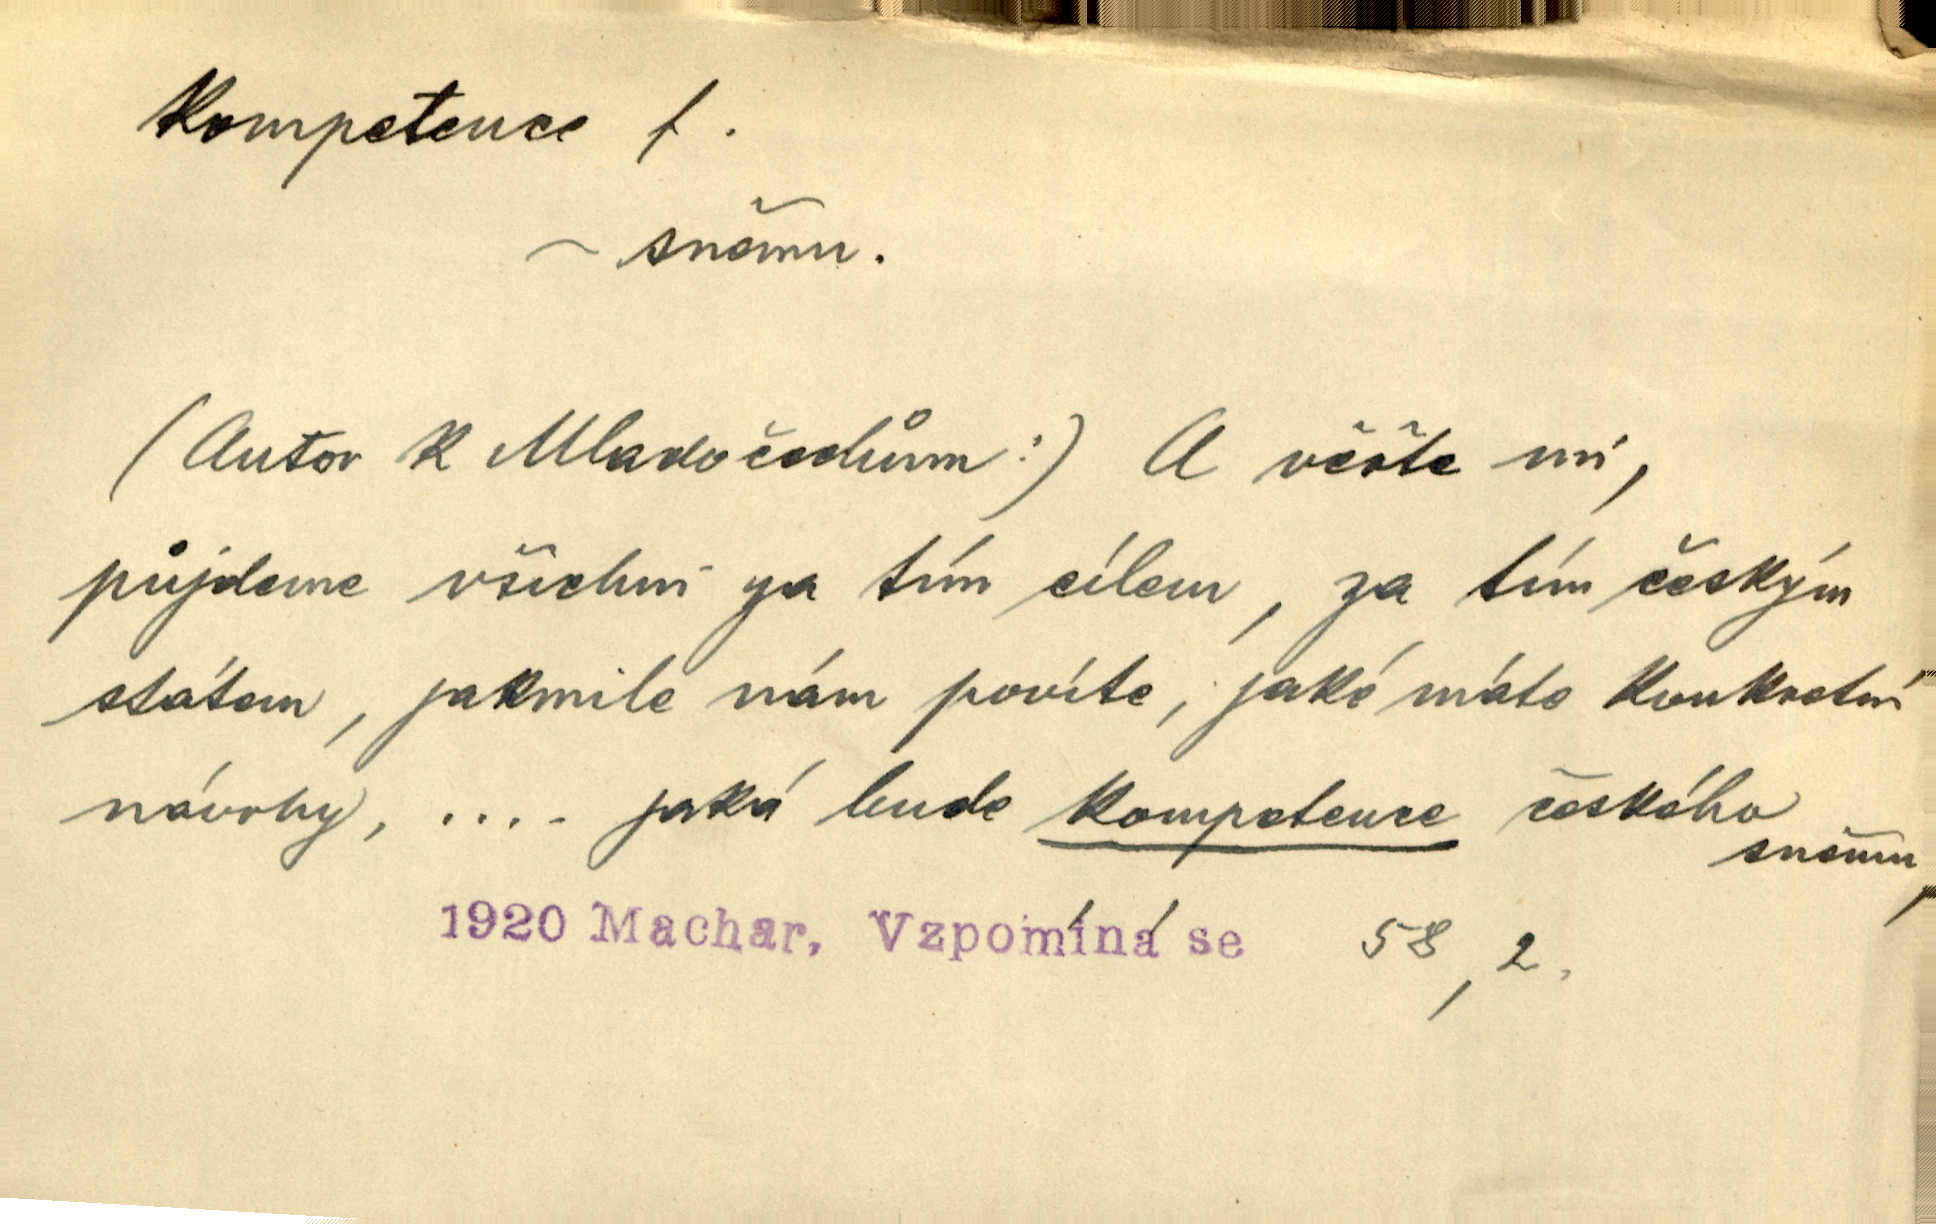 Kompetence f.
~ sněmu.
(Autor k Mladočechům:) A věřte mi,
půjdeme všichni za tím cílem, za tím českým
státem, jakmile nám povíte, jaké máte konkretní
návrhy, .... jaká bude kompetence českého
sněmu,
1920 Machar, Vzpomíná se 58, 2.